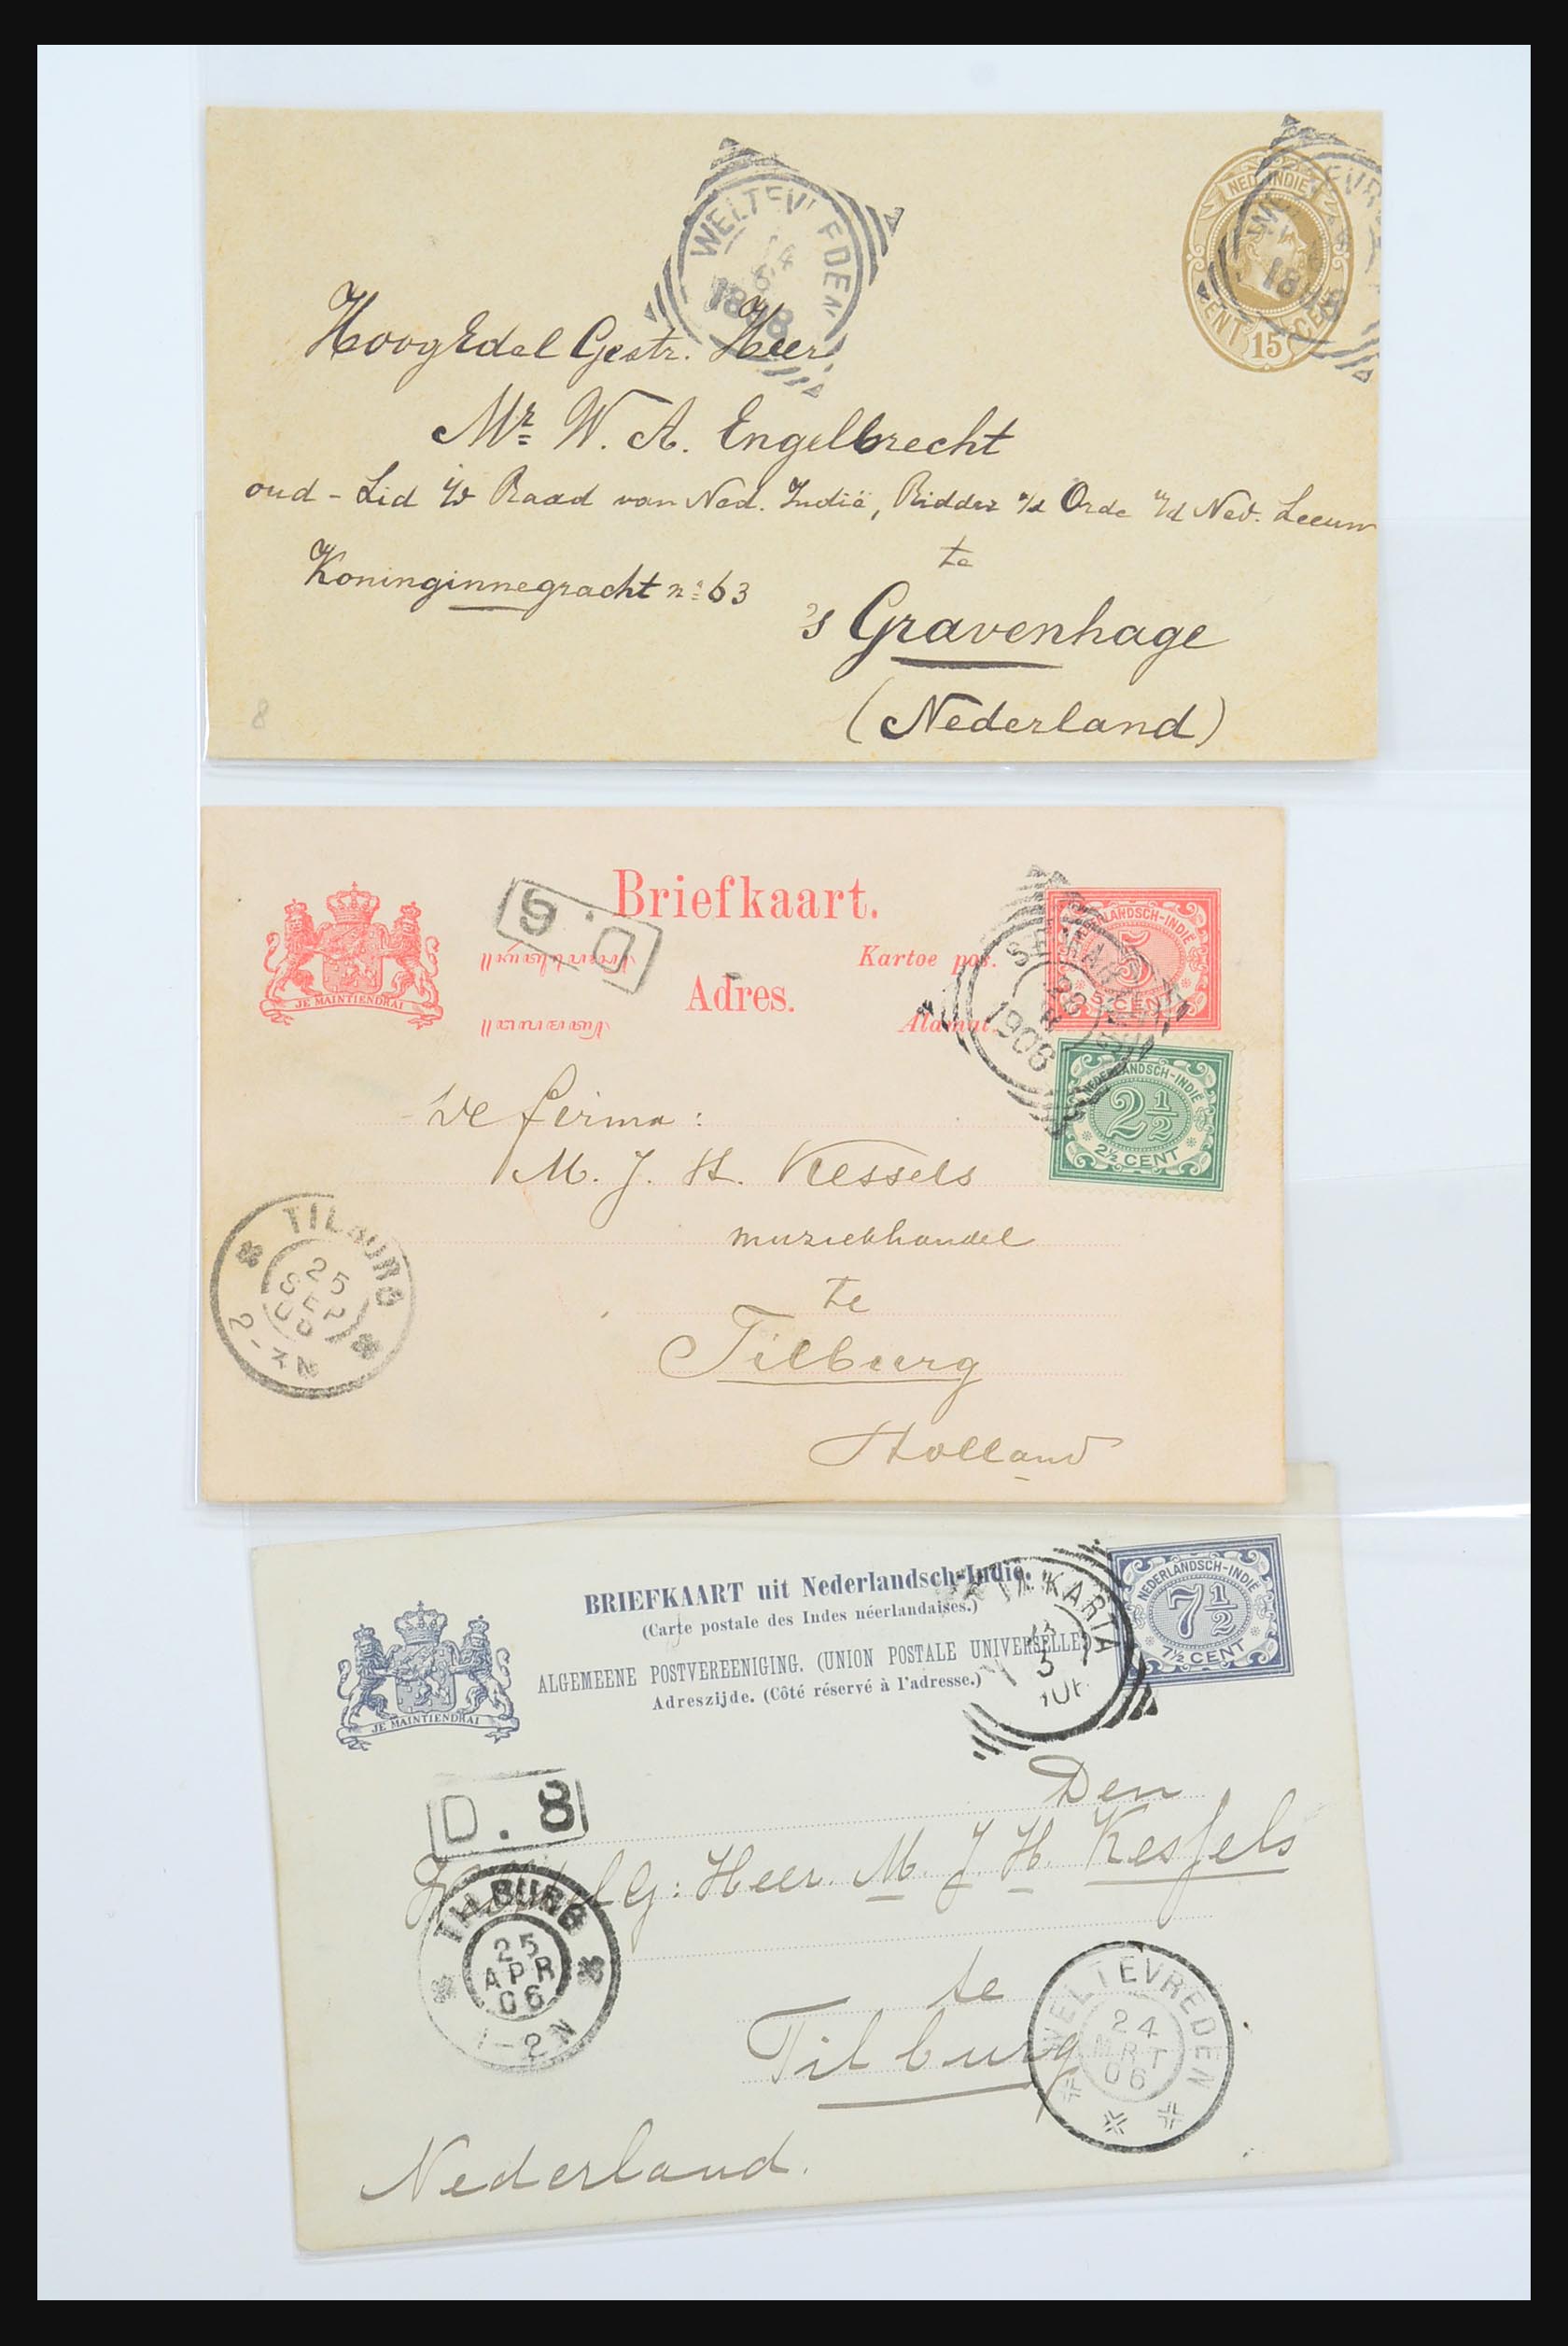 NED. INDIE
15
CENT
WELTEV
EDEN
1898
HoogEdel Gestr. Heer
Mr. W. A. Engelbrecht
oud - Lid i/d Raad van Ned. Indië, Ridder i/d Orde v/d Ned. Leeuw
te
Koninginnegracht no. 63
's Gravenhage
(Nederland)
8
Briefkaart.
Kartoe pos.
Adres.
Alamat.
JE MAINTIENDRAI
NEDERLANDSCH-INDIË
5
5 CENT
D. 9
SEMARANG
1906
NEDERLANDSCH-INDIË
2½
2½ CENT
De firma:
M. J. H. Kessels
muziekhandel
te
Tilburg
Holland
TILBURG
25
SEP
2-3N
BRIEFKAART uit Nederlandsch-Indië.
(Carte postale des Indes néerlandaises.)
ALGEMEENE POSTVEREENIGING. (UNION POSTALE UNIVERSELLE)
Adreszijde. (Côté réservé à l'adresse.)
JE MAINTIENDRAI
NEDERLANDSCH-INDIË
7½
7½ CENT
KARTA
D. 8
Den
Heer M. J. H. Kessels
te
Tilburg
Nederland.
TILBURG
25
APR
06
1-2N
WELTEVREDEN
24
MRT
06